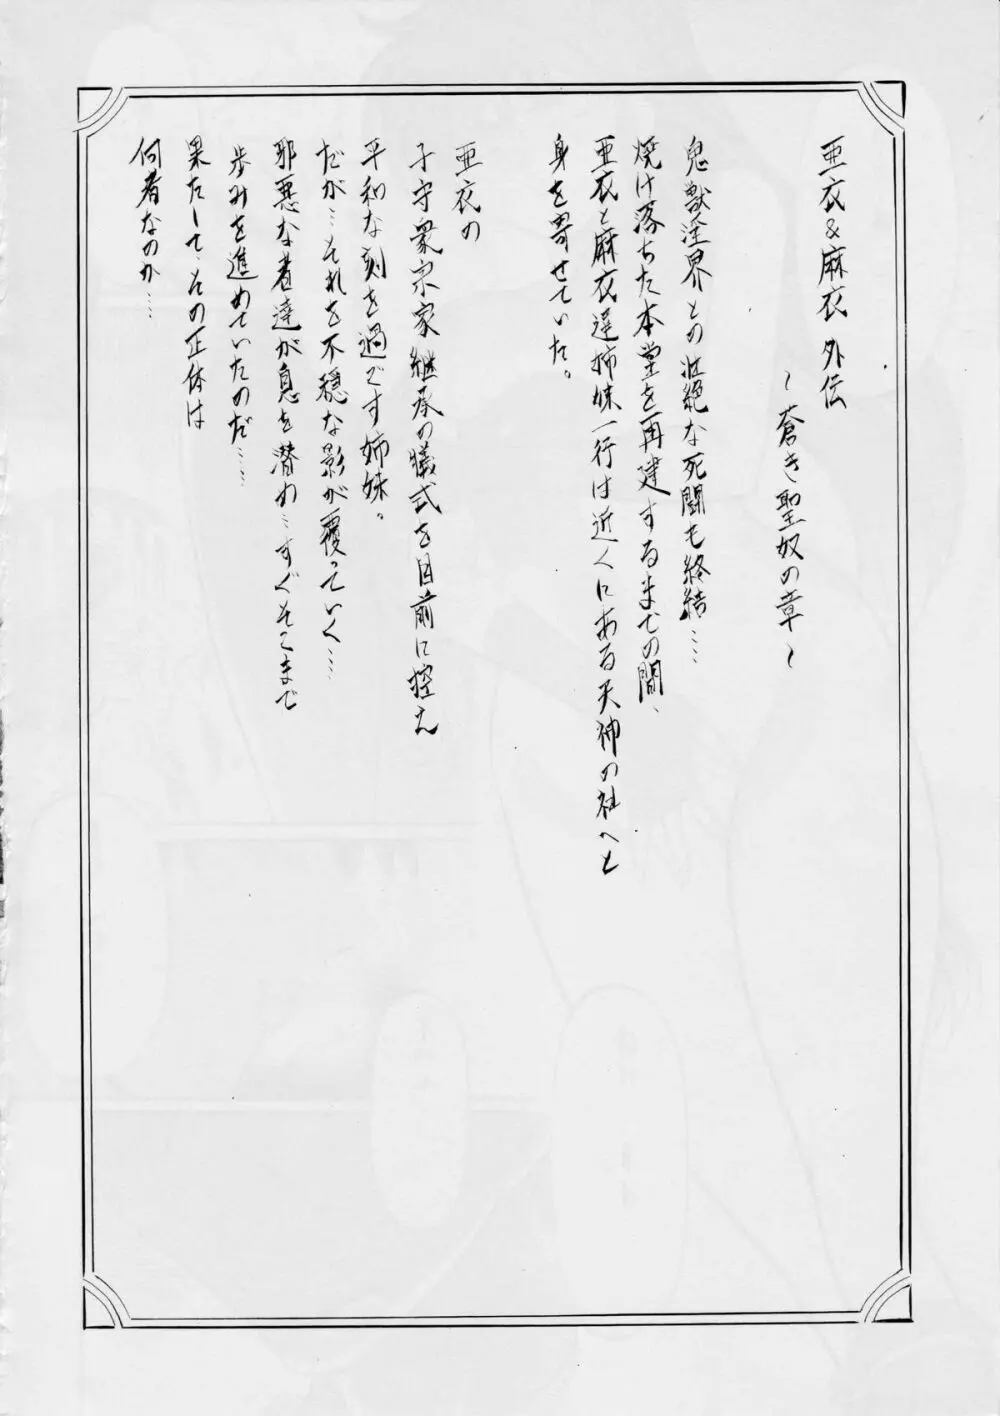 亜衣&麻衣 外伝
～蒼き聖奴の章～
鬼獣淫界との壮絶な死闘も終結……
焼け落ちた本堂を再建するまでの間、
亜衣と麻衣達姉妹一行は近くにある天神の社へと
身を寄せていた。
亜衣の
子守衆宗家継承の儀式を目前に控え
平和な刻を過ごす姉妹。
だが…それを不穏な影が覆っていく……
邪悪な者達が息を潜め…すぐそこまで
歩みを進めていたのだ……
果たして、その正体は
何者なのか……